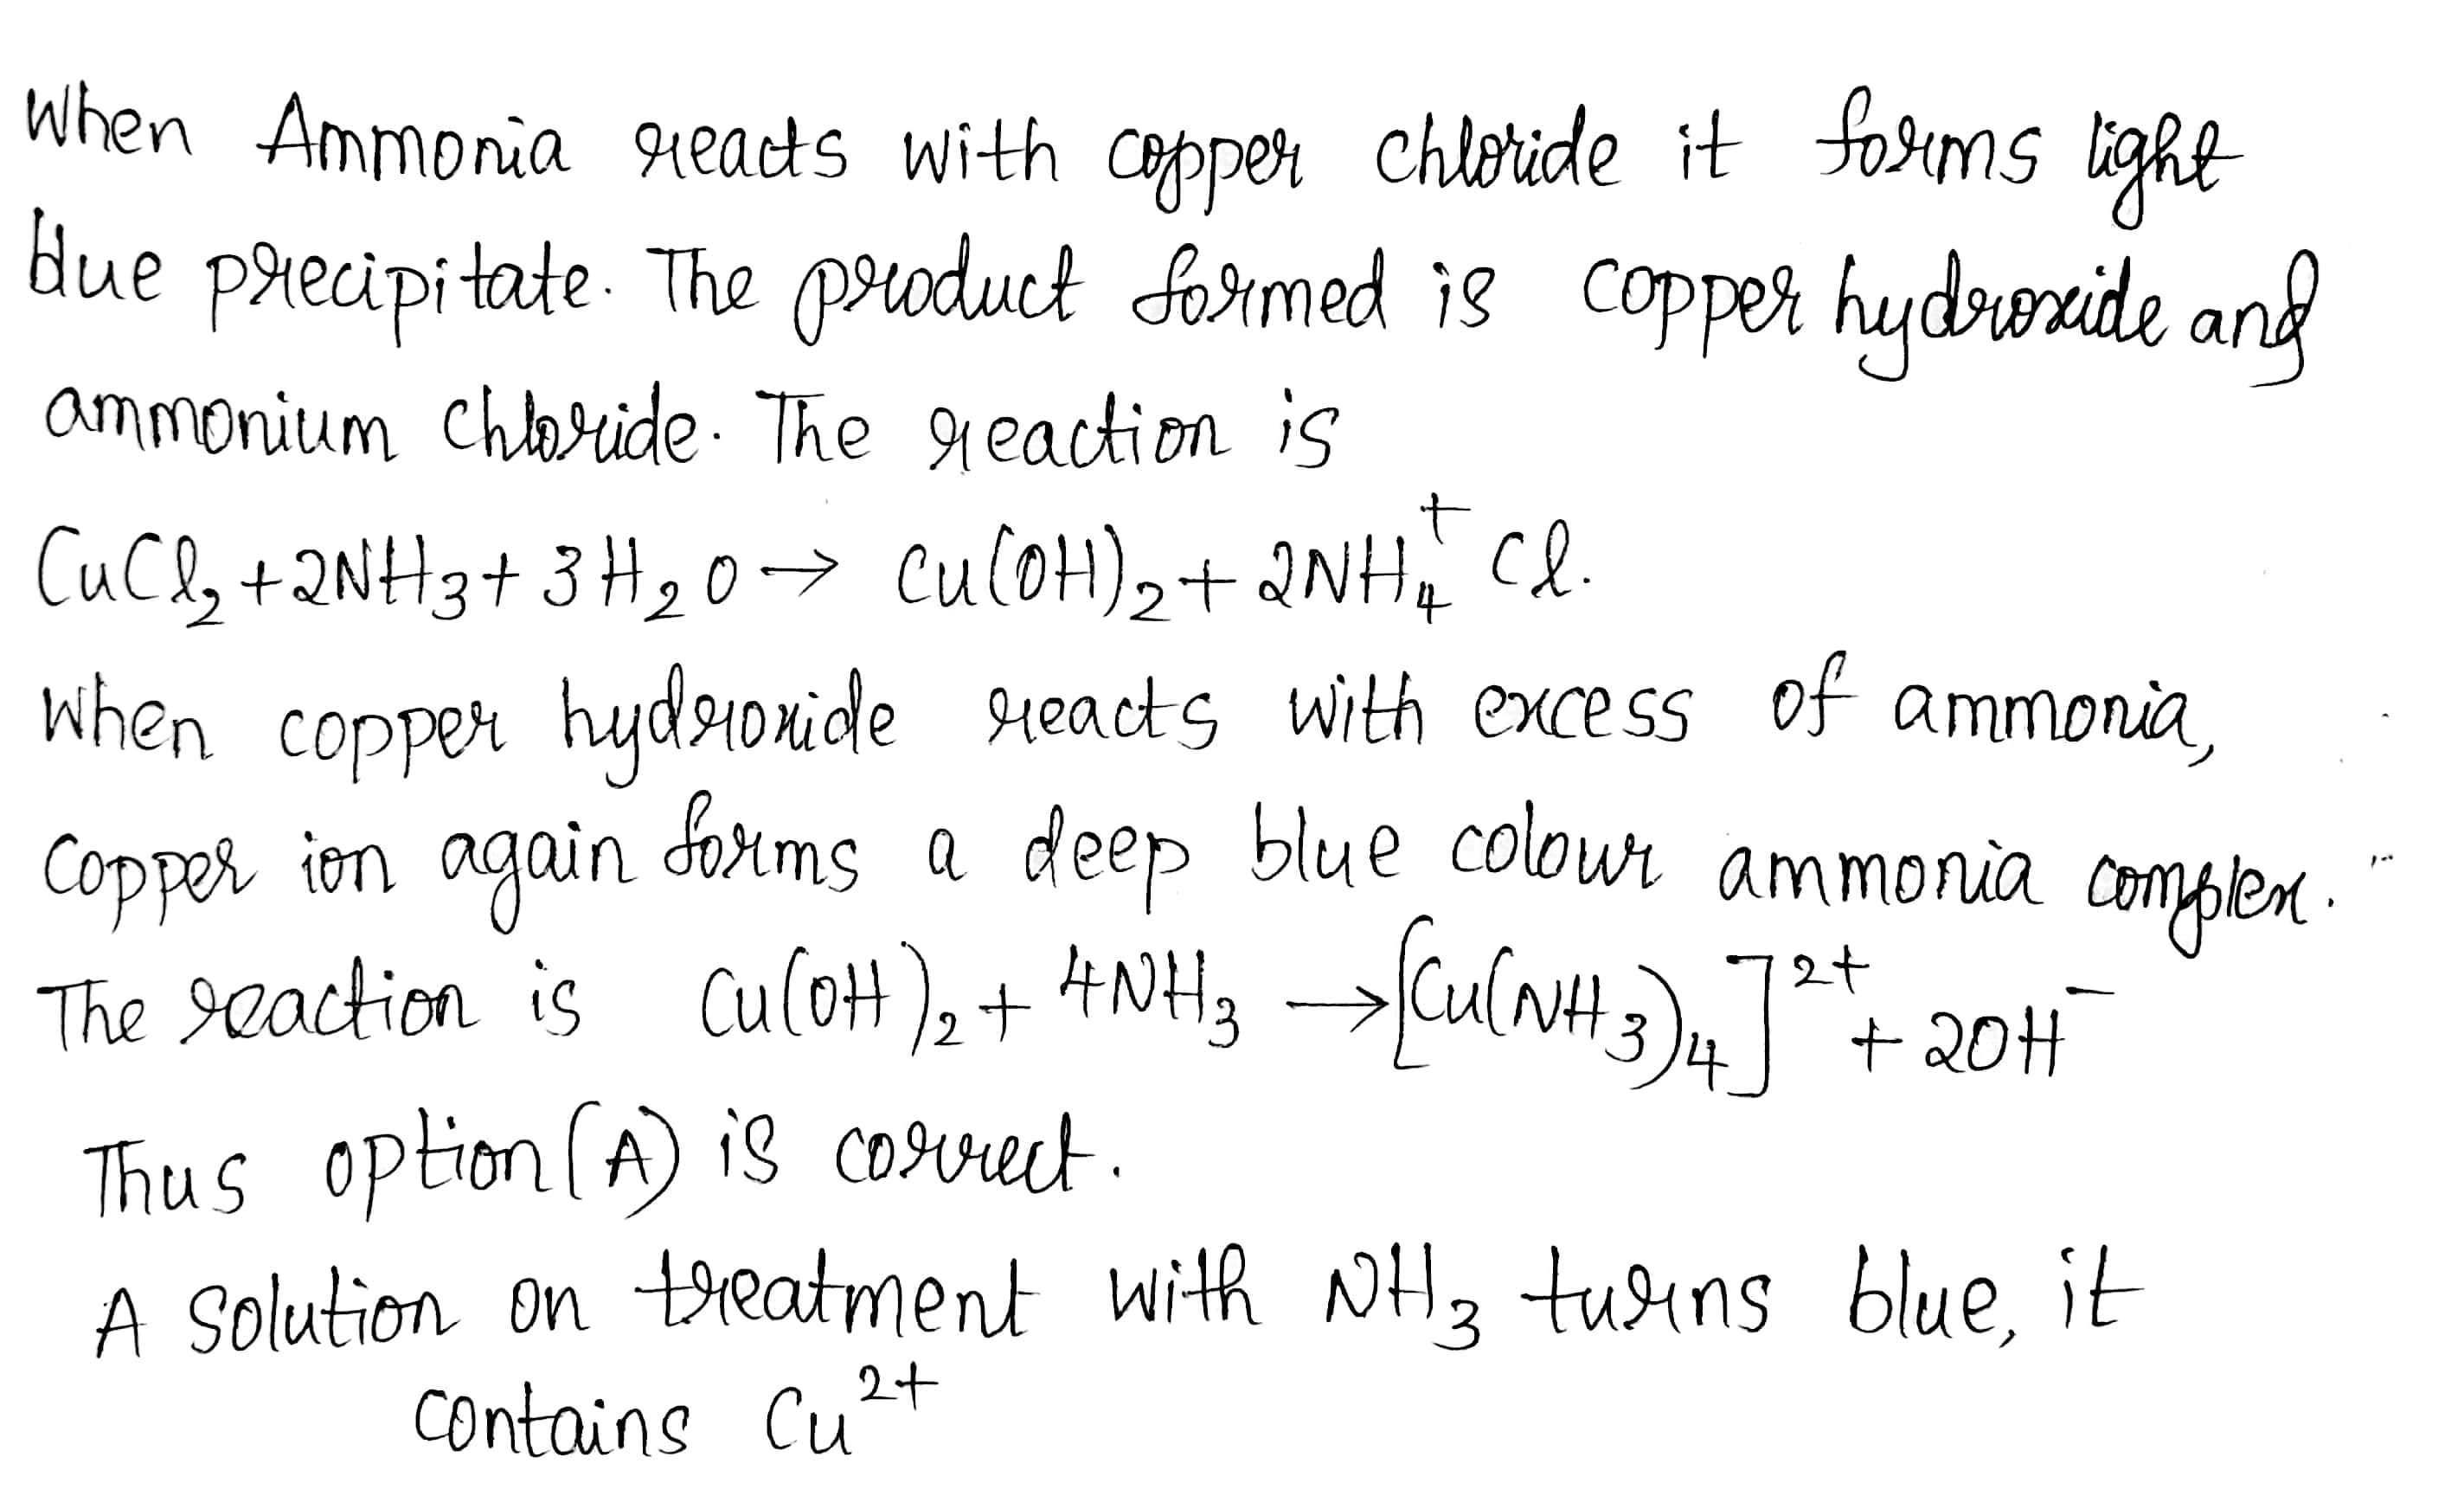 When Ammonia reacts with copper chloride it forms light
blue precipitate. The product formed is copper hydroxide and
ammonium chloride. The reaction is
CuCl₂ + 2NH₃ + 3H₂O → Cu(OH)₂ + 2NH₄⁺ Cl.
When copper hydroxide reacts with excess of ammonia,
copper ion again forms a deep blue colour ammonia complex.
The reaction is Cu(OH)₂ + 4NH₃ → [Cu(NH₃)₄]²⁺ + 2OH⁻
Thus option (A) is correct.
A solution on treatment with NH₃ turns blue, it
contains Cu²⁺